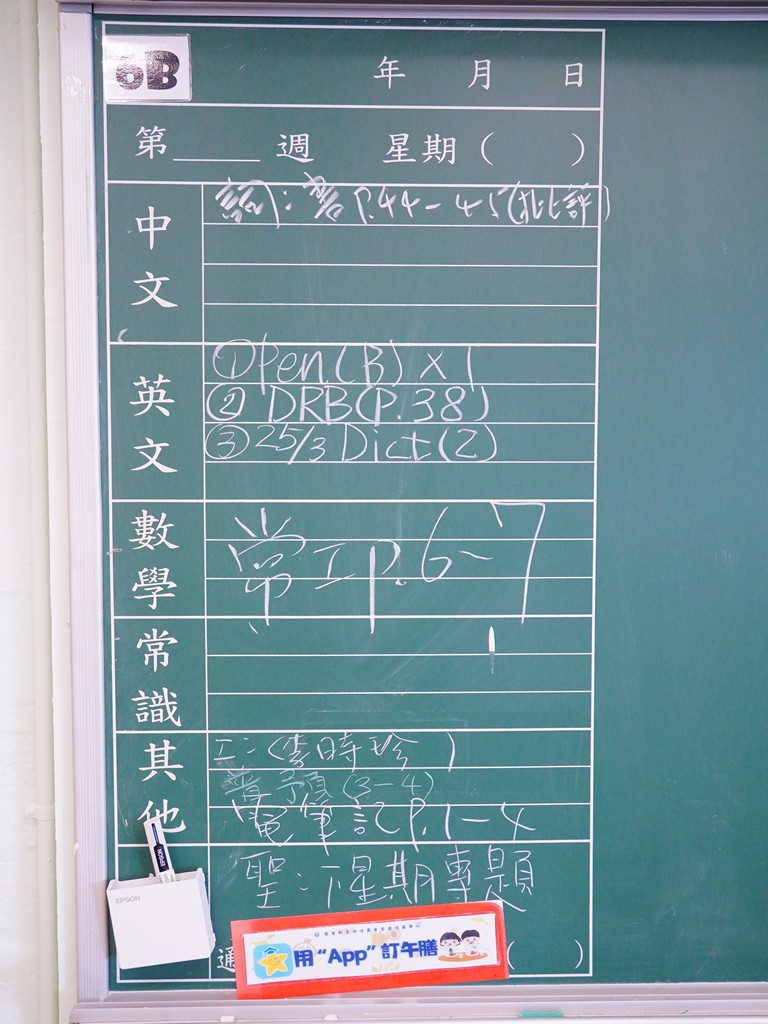 6B
年 月 日
第____週 星期( )
中文
詞:書P.44-45(批評)
英文
①Pen(B)×1
② DRB(P.38)
③25/3 Dict(2)
數學
常工P.6-7
常識
其他
工:(李時珍)
普預(3-4)
電筆記P.1-4
聖:下星期專題
EPSON
EPSON
通
用“App”訂午膳
( )